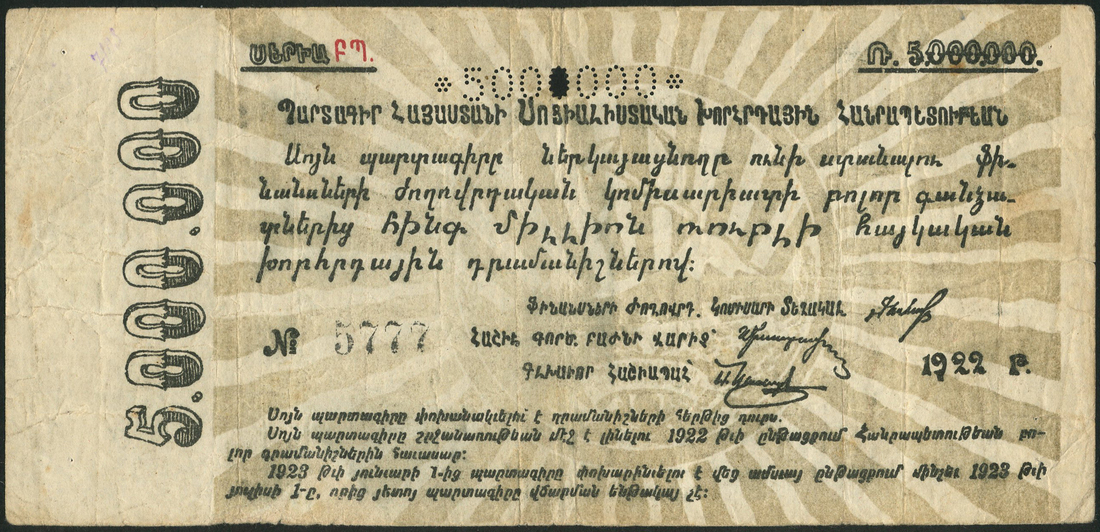 ՍԵՐԻԱ ԲՊ.
Ռ. 5.000.000.
*500 000*
5.000.000
ՊԱՐՏԱԳԻՐ ՀԱՅԱՍՏԱՆԻ ՍՈՑԻԱԼԻՍՏԱԿԱՆ ԽՈՐՀՐԴԱՅԻՆ ՀԱՆՐԱՊԵՏՈՒԹԵԱՆ
Սոյն պարտագիրը ներկայացնողը ունի ստանալու ֆի-
նանսների ժողովրդական կոմիսարիատի բոլոր գանձա-
պետներից հինգ միլլիոն ռուբլի հայկական
խորհրդային դրամանիշներով:
ՖԻՆԱՆՍՆԵՐԻ ԺՈՂՈՎՐԴ. ԿՈՄԻՍԱՐԻ ՏԵՂԱԿԱԼ
№ 5777
ՀԱՇԻՒ ԳՈՐԾ. ԲԱԺՆԻ ՎԱՐԻՉ
ԳԼԽԱՒՈՐ ՀԱՇԻԱՊԱՀ
1922 Թ.
Սոյն պարտագիրը փոխանակւելիւ է դրամանիշների հերթից դուրս.
Սոյն պարտագիրը շրջանառութեան մէջ է լինելու 1922 թւի ընթացքում Հանրապետութեան բո-
լոր դրամանիշներին հաւասար:
1923 թւի յունւարի 1-ից պարտագիրը փոխարինւելու է վեց ամսւայ ընթացքում մինչեւ 1923 թւի
յուլիսի 1-ը, որից յետոյ պարտագիրը վճարման ենթակայ չէ: